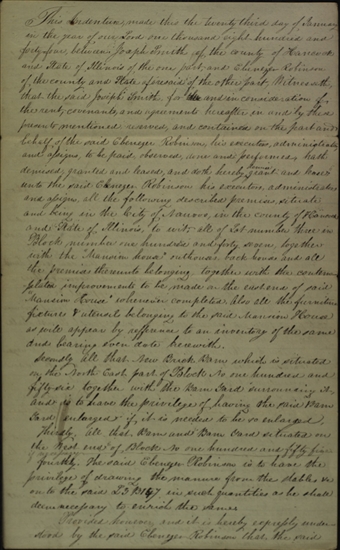 This Indenture, made this the twenty third day of January
in the year of our Lord one thousand eight hundred and
forty four, between Joseph Smith of the county of Hancock
and State of Illinois of the one part, and Ebenezer Robinson
of the county and State aforesaid of the other part, Witnesseth,
that the said Joseph Smith, for and in consideration of
the rent, covenants and agreements hereafter in and by these
presents mentioned reserved, and contained on the part and
behalf of the said Ebenezer Robinson, his executors, administrators
and assigns, to be paid, observed, done and performed, hath
demised, granted and leased, and doth hereby demise grant and lease
unto the said Ebenezer Robinson his executors, administrators
and assigns, all the following described premises, situate
and being in the City of Nauvoo, in the county of Hancock
and State of Illinois, to wit: all of Lot number three in
Block number one hundred and forty seven, together
with the Mansion house outhouses back house and all
the premises thereunto belonging together with the contem
plated improvements to be made on the east end of said
Mansion House whenever completed. Also all the furniture
fixtures & attached belonging to the said Mansion House
as will appear by refference to an inventory of the same
and bearing even date herewith.
Secondly all that New Brick Barn which is situated
on the North East part of Block No one hundred and
fifty six together with the Barn Yard surrounding it
and is to have the priviledge of having the said Barn
Yard enlarged if it is needed to be so enlarged
Thirdly, all that Barn and Barn Yard situated on
the West end of Block No one hundred and fifty five
fourthly. The said Ebenezer Robinson is to have the
priviledge of drawing the manure from the stables &c
on to the said L3 B147 in such quantities as he shall
deem necessary to enrich the same
Provided however, and it is hereby expressly under
stood by the said Ebenezer Robinson that the said